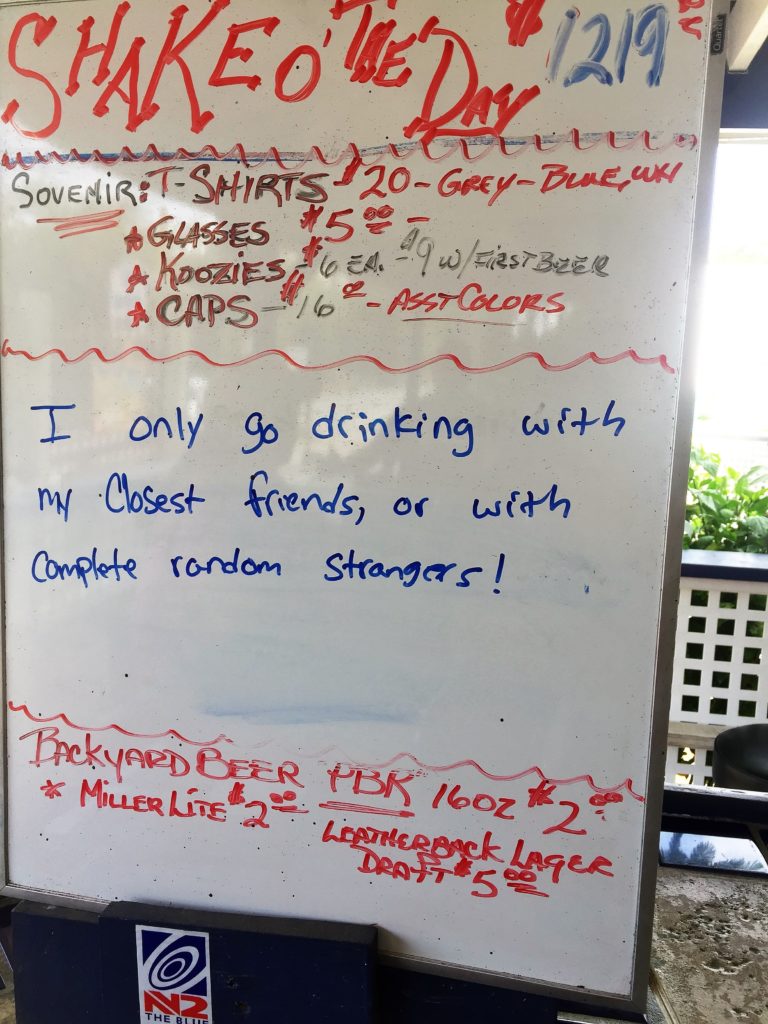 SHAKE O' THE DAY $1219
SOVENIR: T-SHIRTS - $20 - GREY - BLUE, WH
* GLASSES $5.00 -
* KOOZIES - $6 EA. - $9 W/FIRST BEER
* CAPS - $16.00 - ASST COLORS
I only go drinking with
my Closest friends, or with
complete random strangers!
BACKYARD BEER PBR 16OZ $2.00
* MILLER LITE $2.00
LEATHERBACK LAGER
DRAFT $5.00
N2
THE BLUE
Quartet